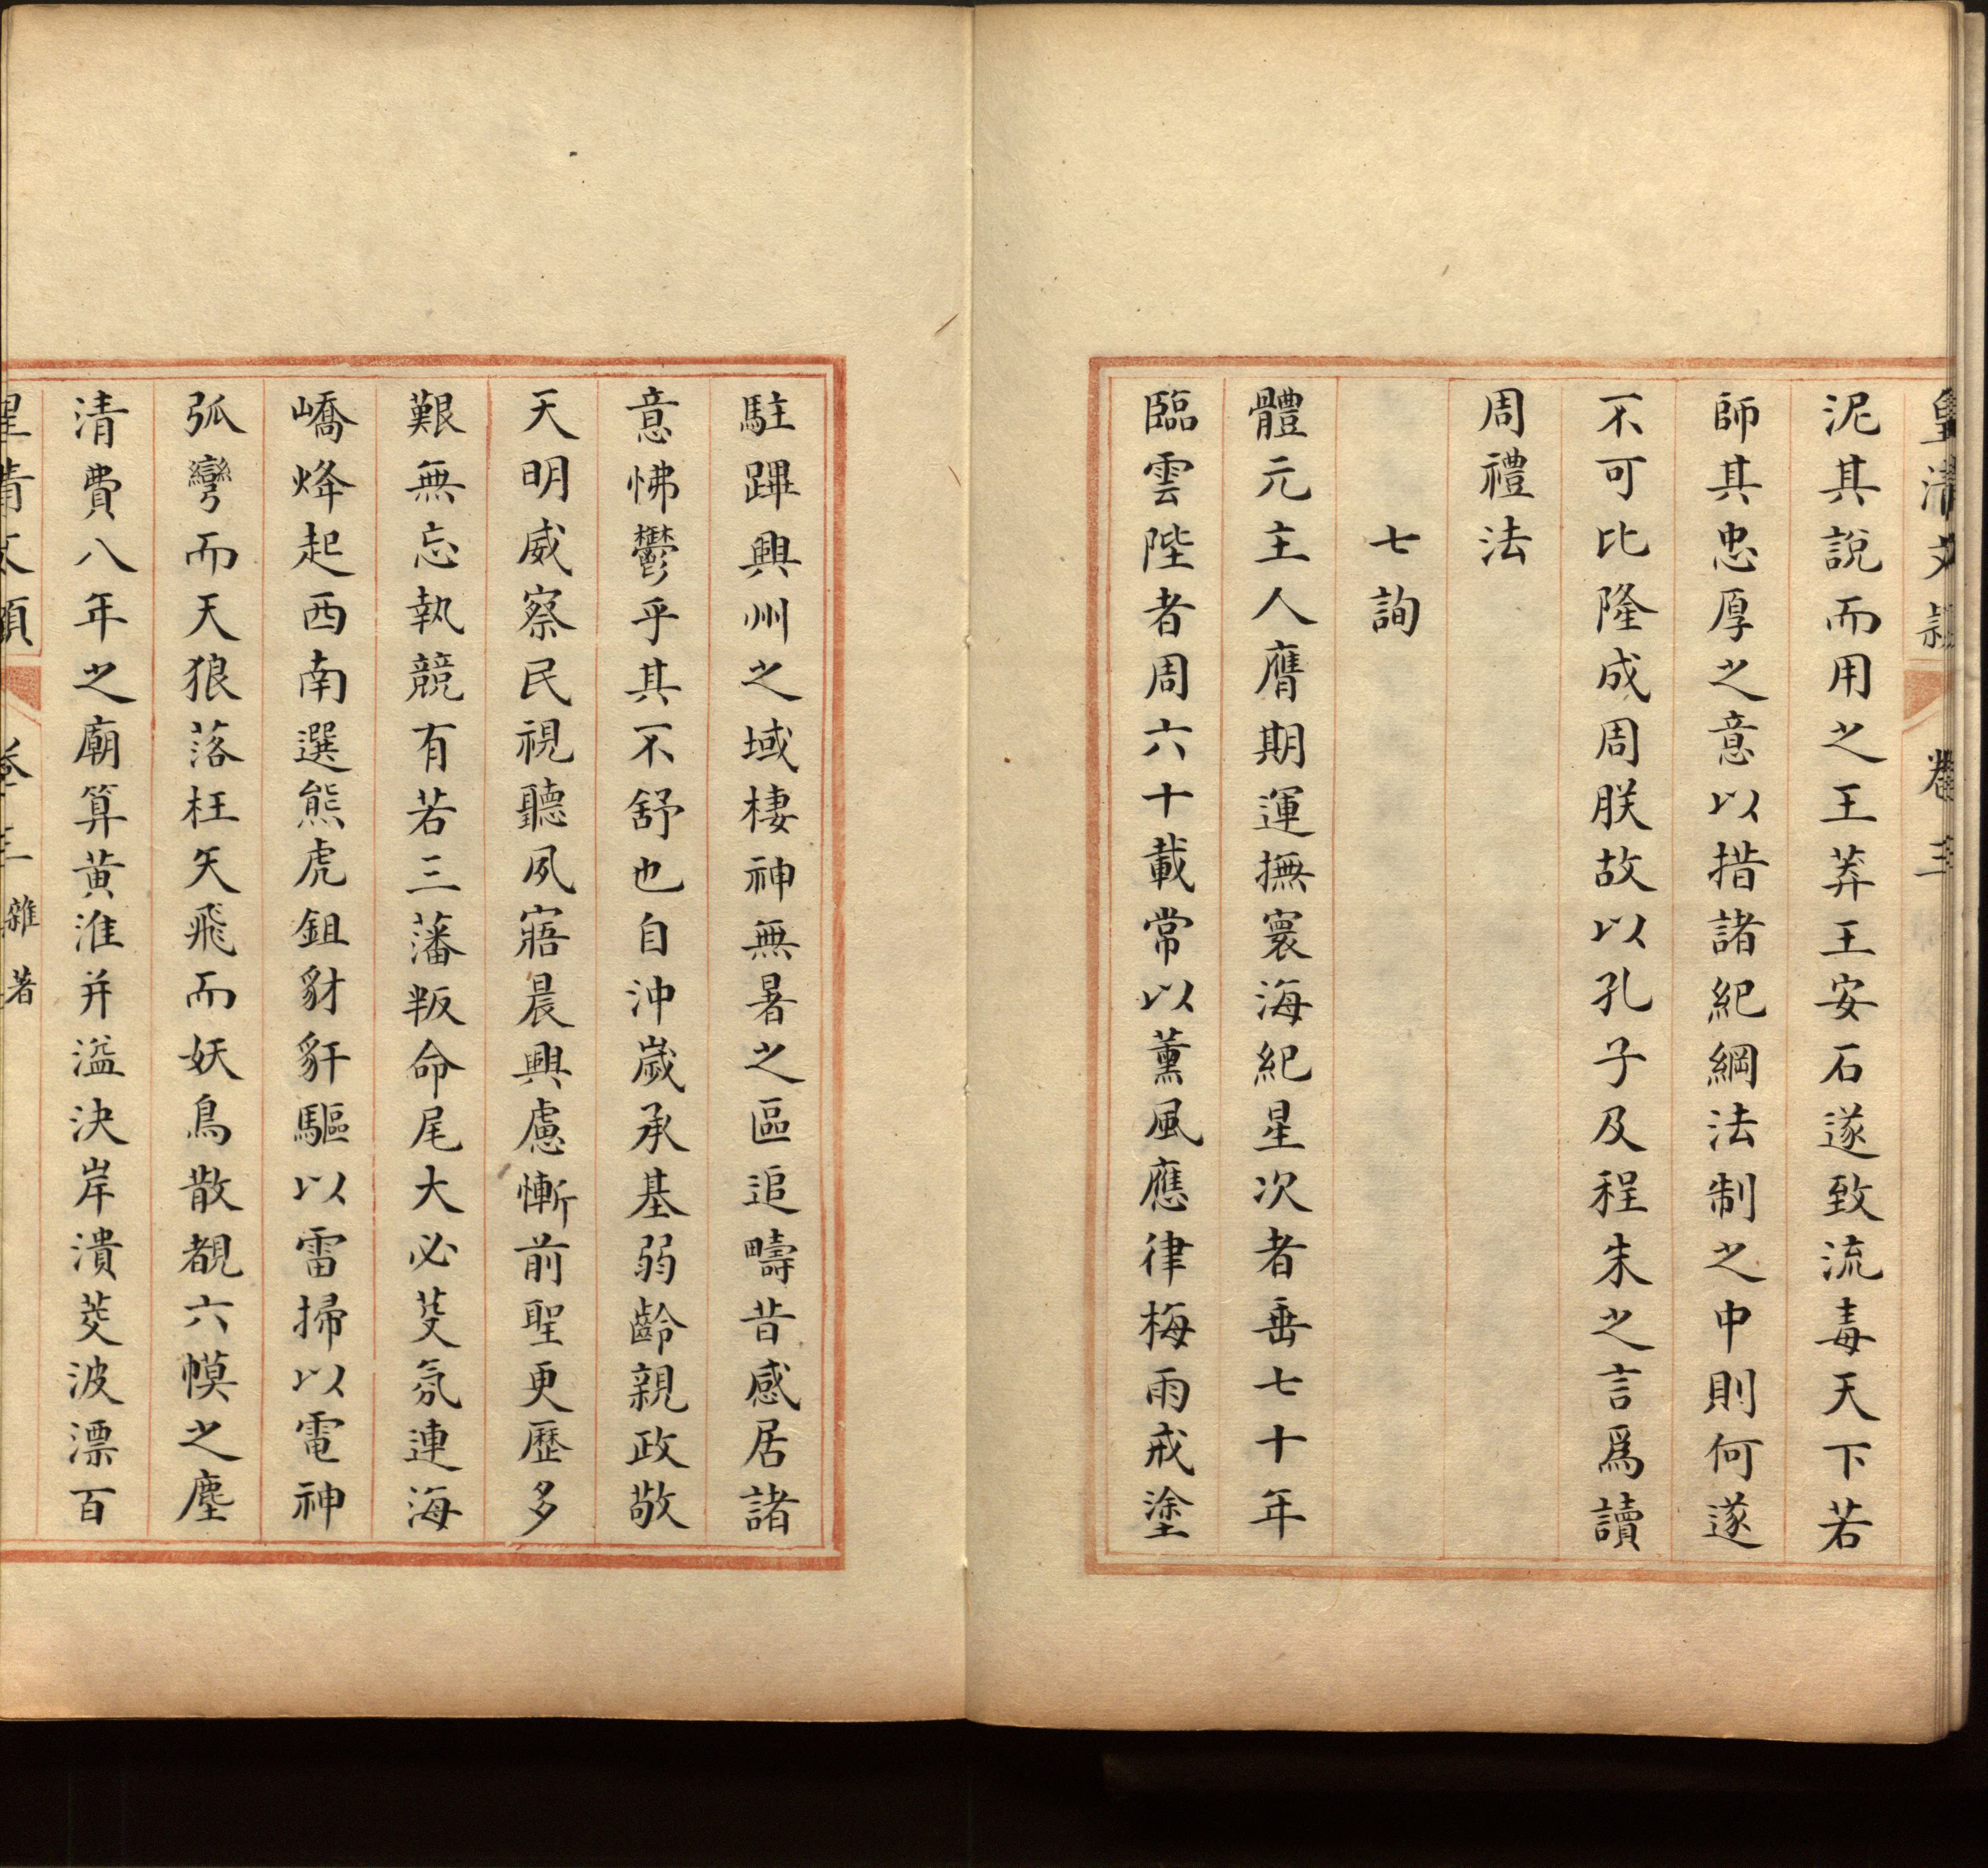 皇清文穎 卷三
泥其說而用之王莽王安石遂致流毒天下若
師其忠厚之意以措諸紀綱法制之中則何遂
不可比隆成周朕故以孔子及程朱之言爲讀
周禮法
七詢
體元主人膺期運撫寰海紀星次者垂七十年
臨雲陛者周六十載常以薰風應律梅雨戒塗
駐蹕興州之域棲神無暑之區追疇昔感居諸
意怫鬱乎其不舒也自沖歲承基弱齡親政敬
天明威察民視聽夙寤晨興慮慚前聖更歷多
艱無忘執競有若三藩叛命尾大必芟氛連海
嶠烽起西南選熊虎鉏豺豻驅以雷掃以電神
弧彎而天狼落枉矢飛而妖鳥散覩六幙之塵
清費八年之廟算黃淮并溢決岸潰茭波漂百
皇清文穎 卷三 雜著